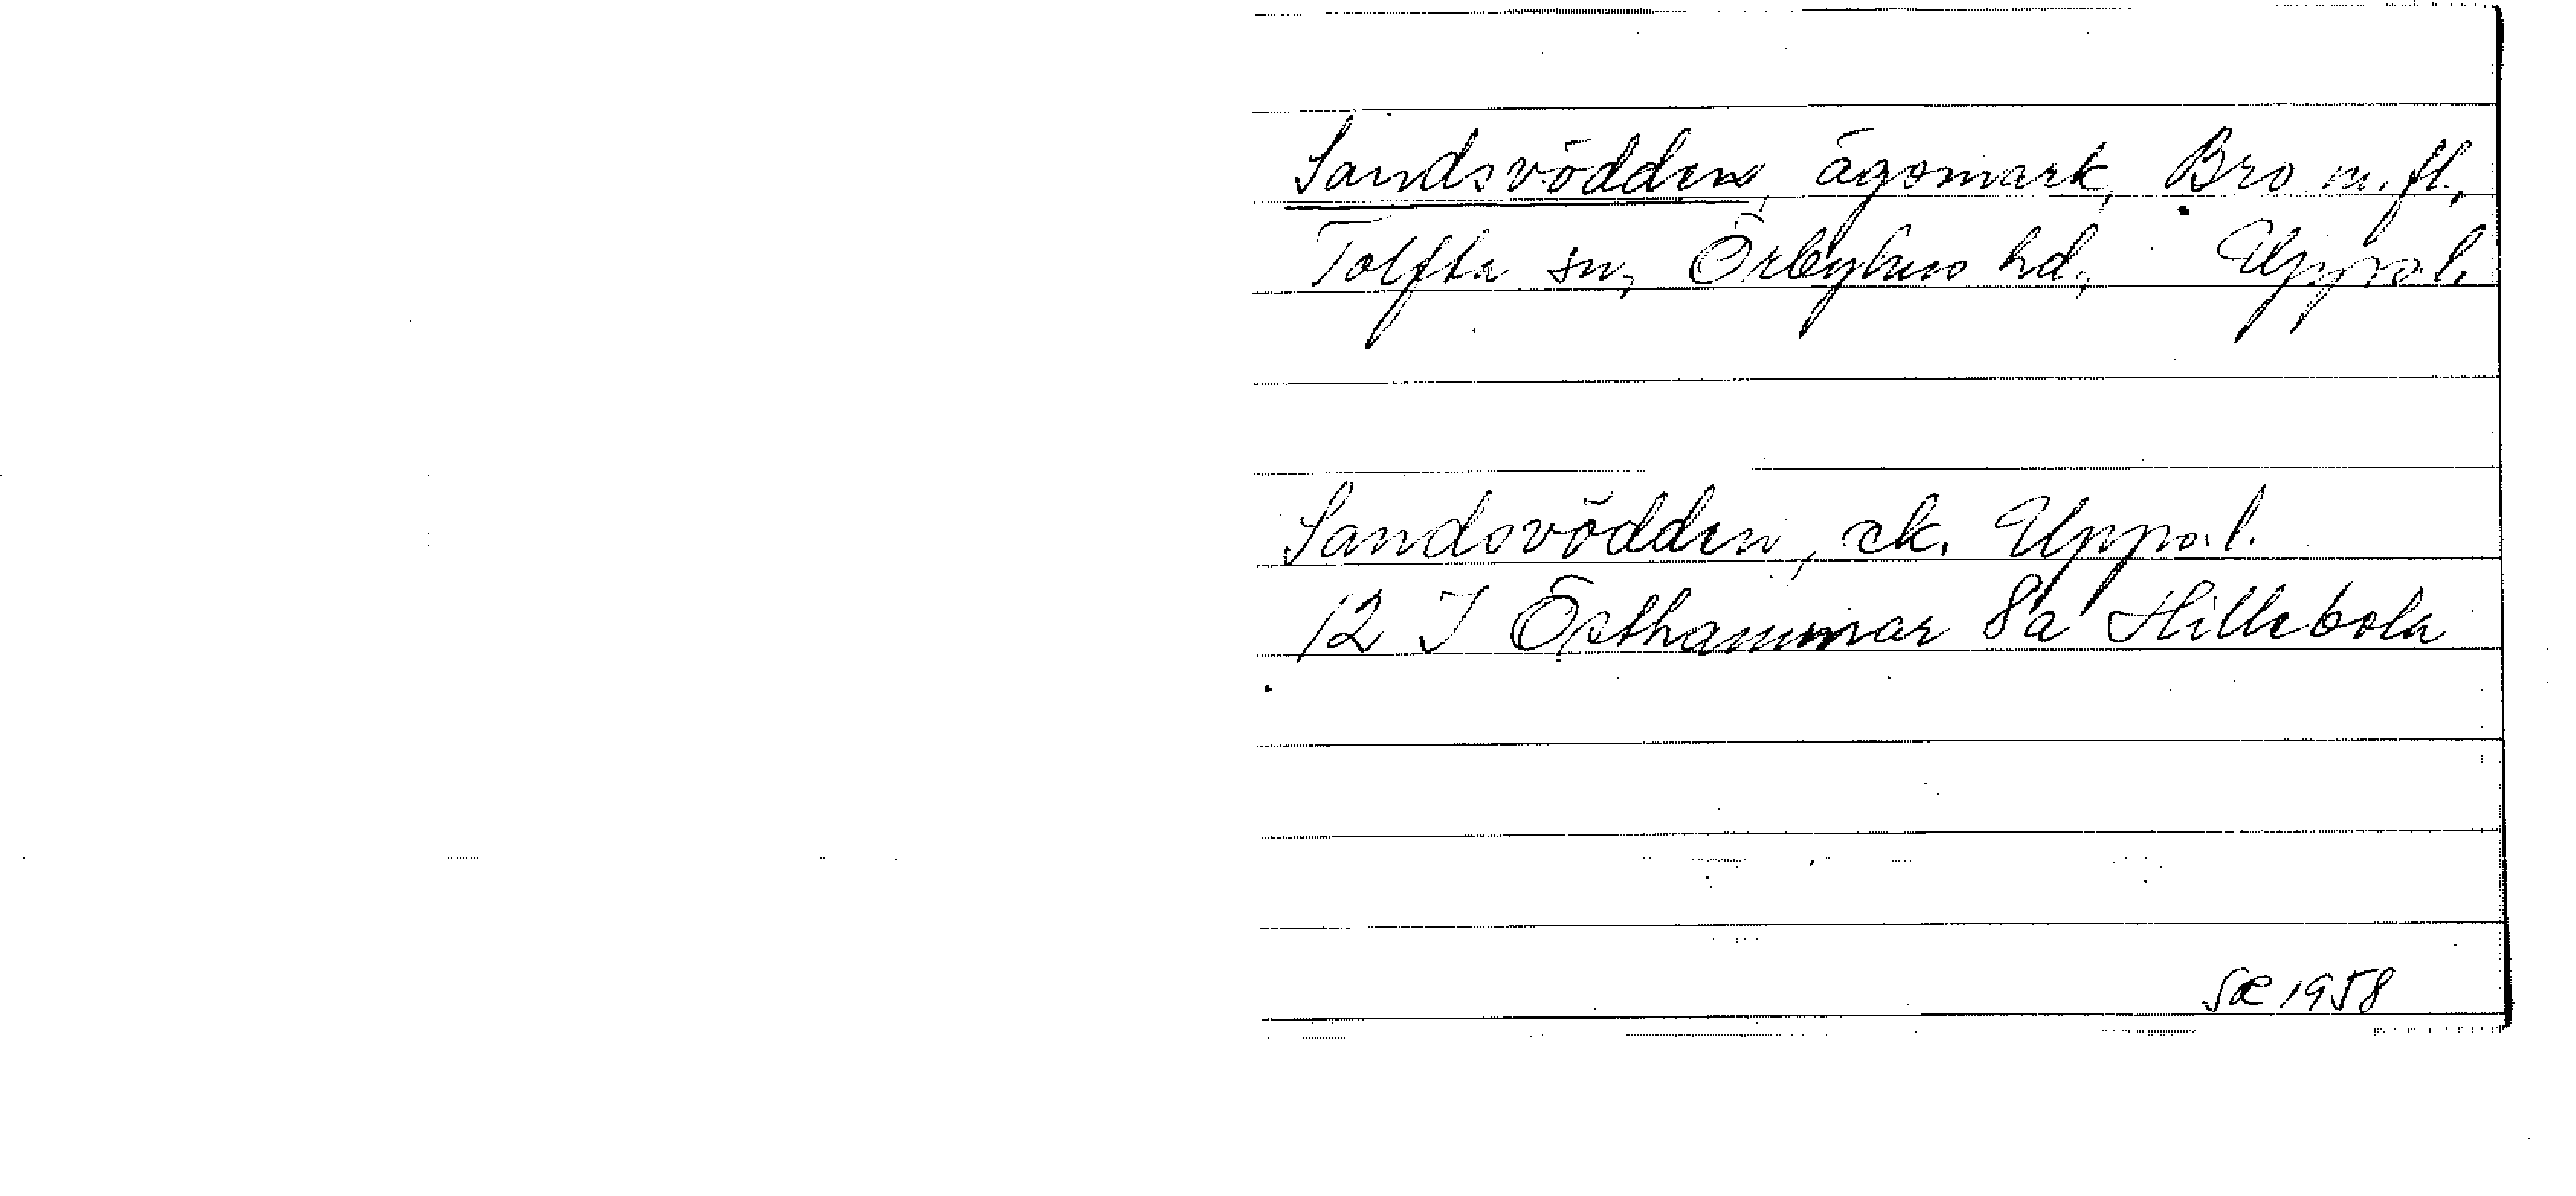 Sandsvödden, ägomark, Bro m. fl.,
Tolfta sn, Örbyhus hd, Upps. l.
Sandsvödden, ek. Upps. l.
12 I Östhammar 8a Hillebola
SÆ 1958